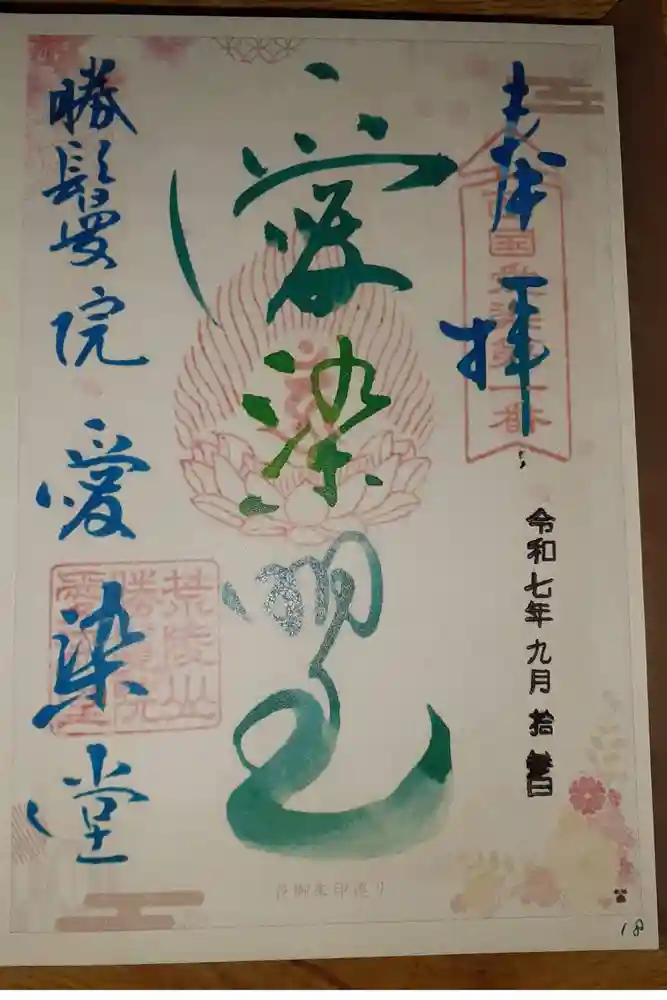 奉拝
西国愛染第一番
令和七年九月拾
愛染明王
勝鬘院愛染堂
荒陵山
勝鬘院
御朱印巡り
18